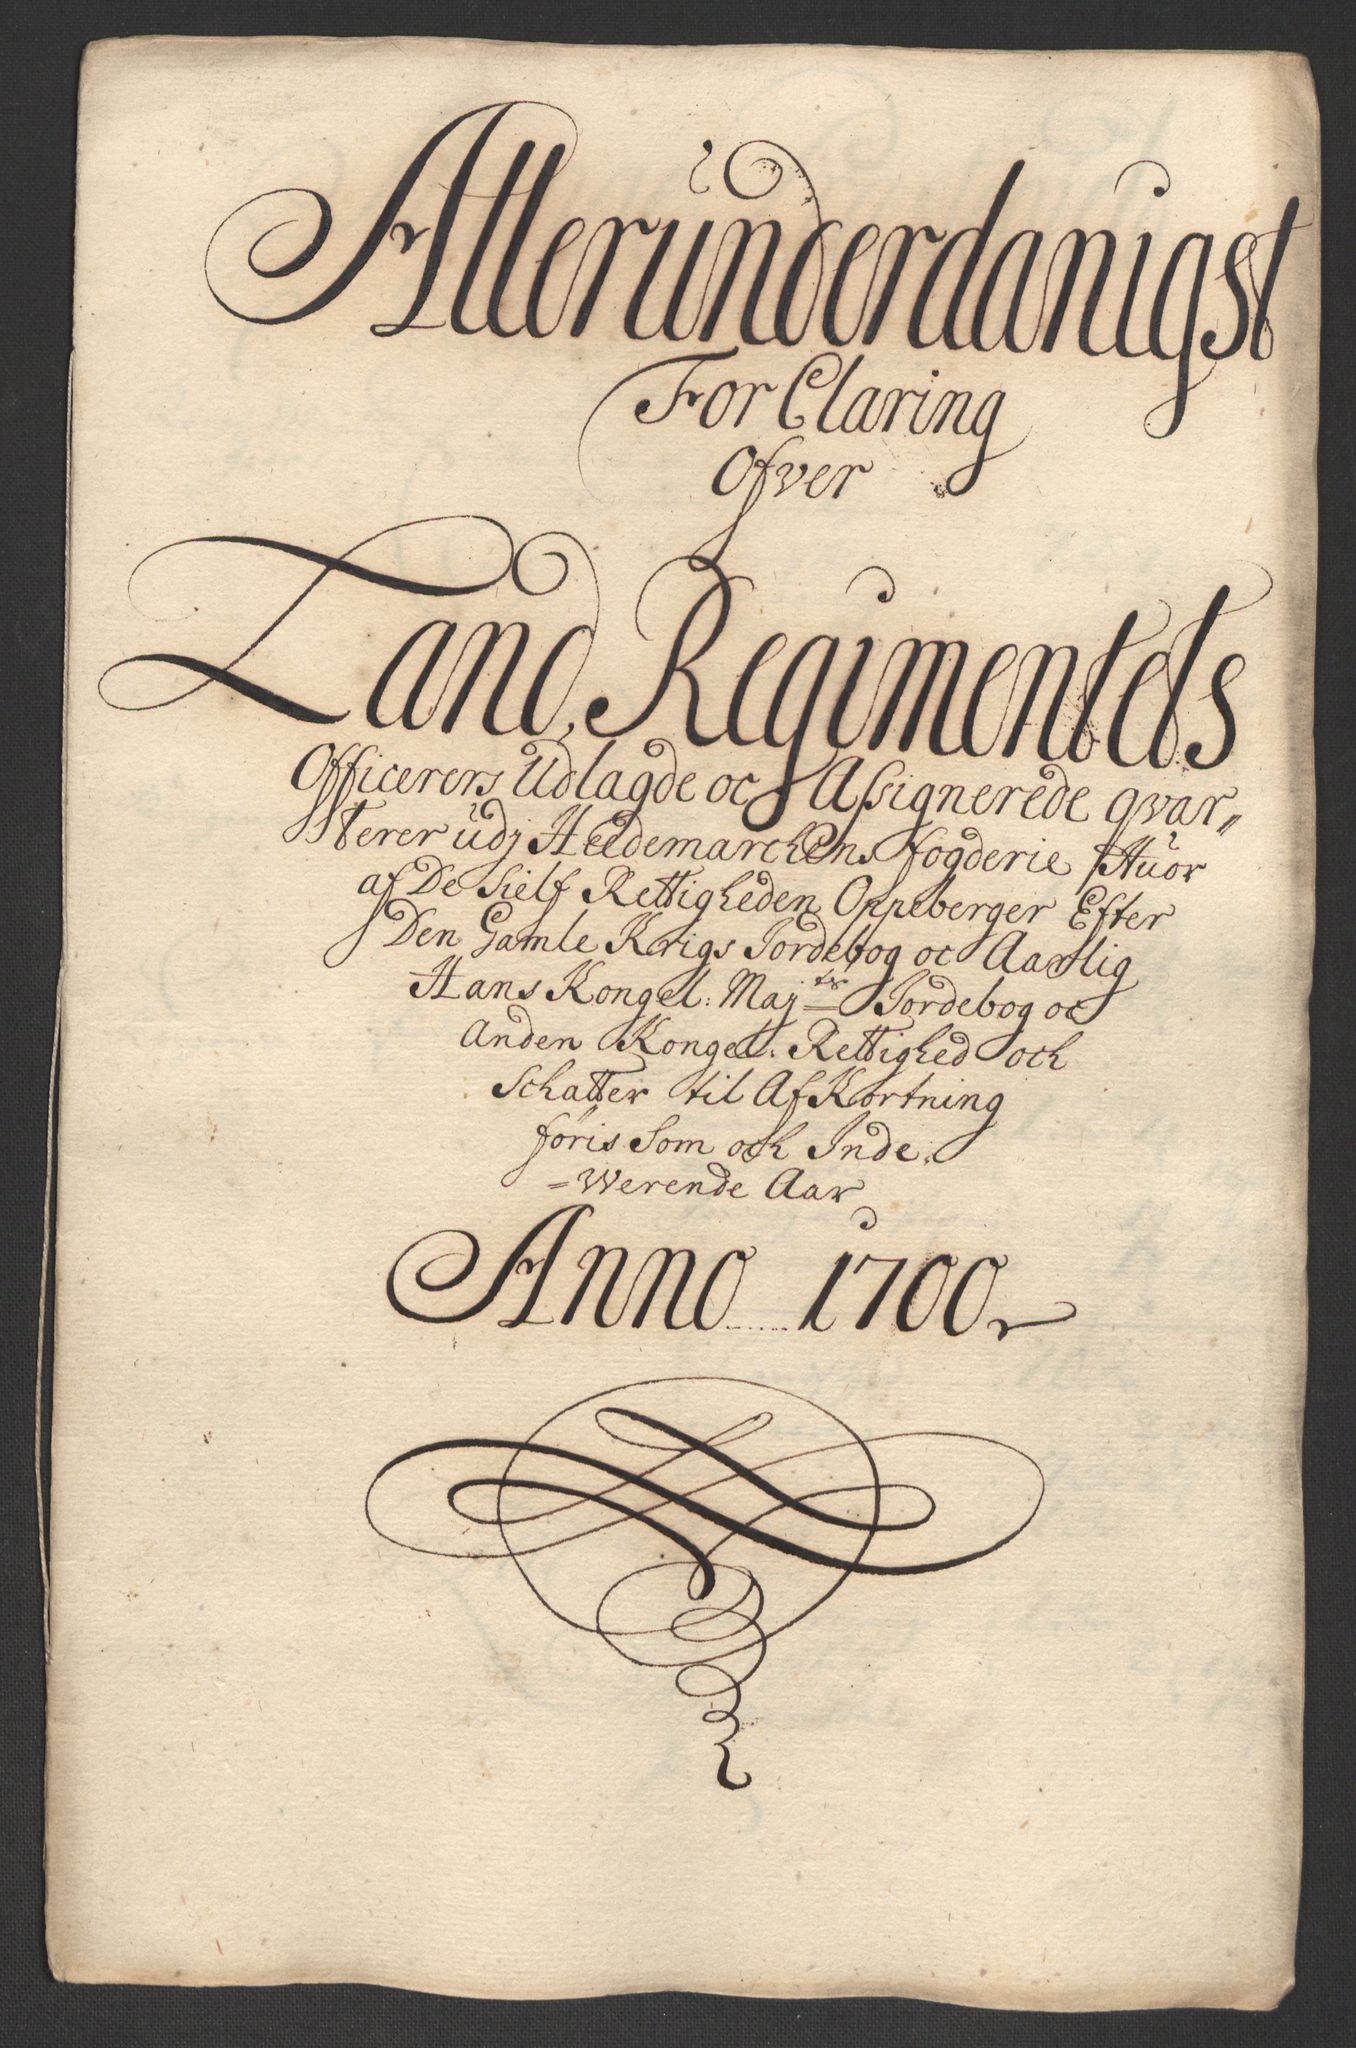 Allerunderdanigst
ForClaring
Ofver
Land Regimentets
Officerers Udlagde oc Assignerede qvar„
terer udj Heedemarchens fogderie Huor
af De Sielf Rettigheden Oppeberger Efter
Den Gamle Krigs Jordebog oc Aarlig
Hans Kongel: Maj:ts Jordebog oc
Anden Kongel: Rettighed och
Schatter til AfKortning
føris Som och Inde„
=Werende Aar
Anno 1700